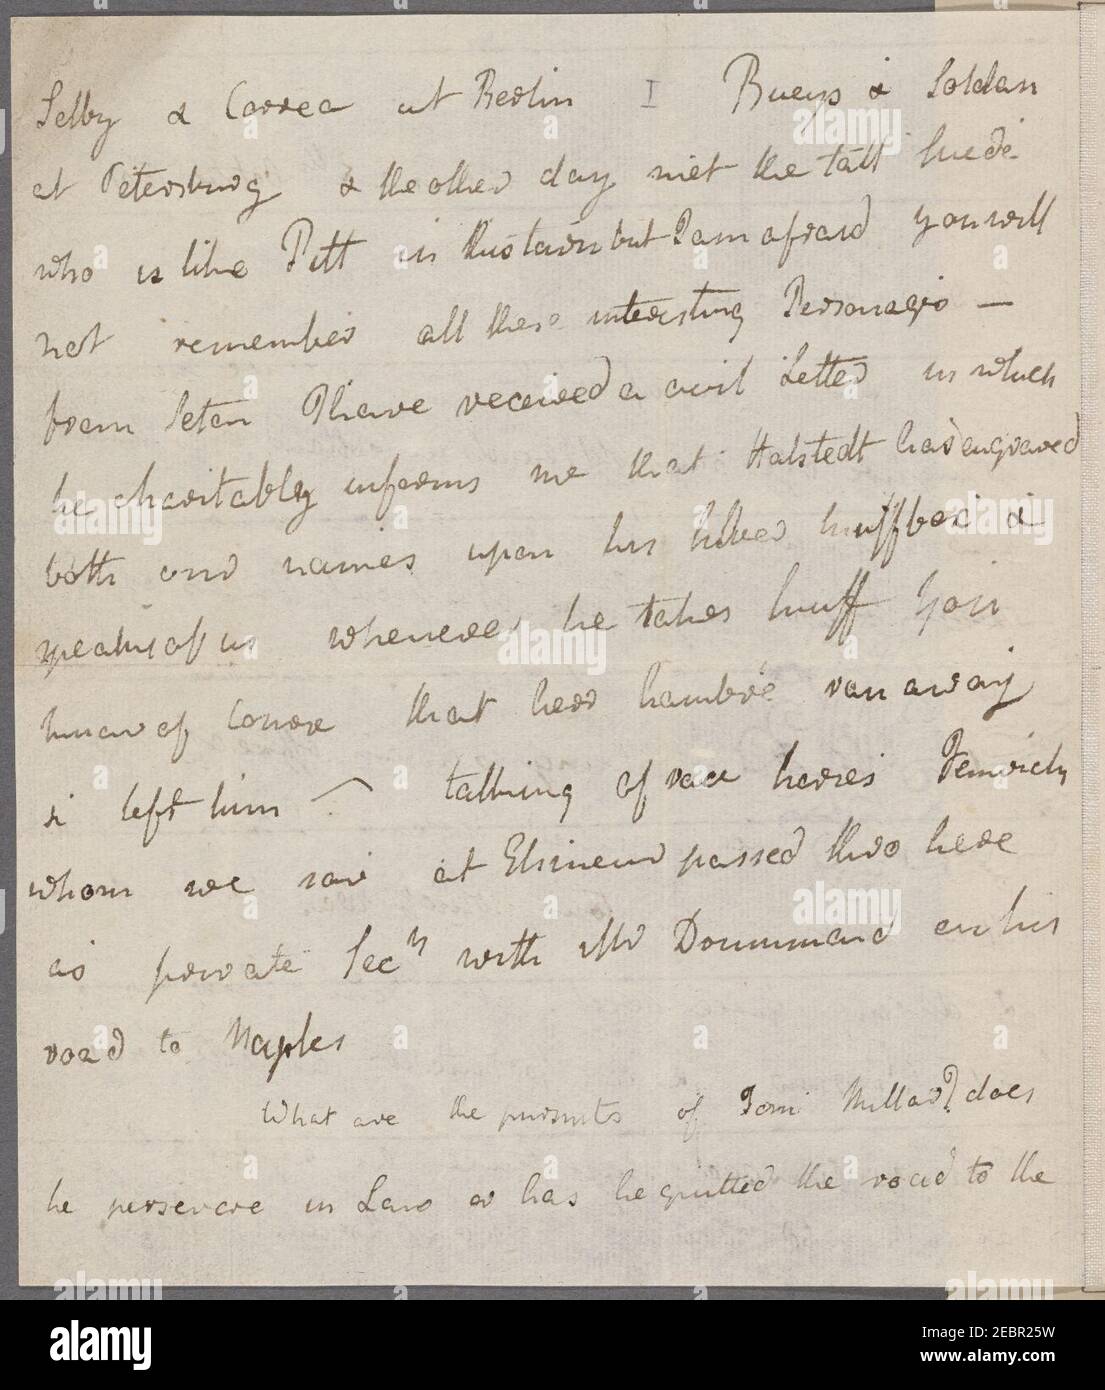 Selby & Correa at Berlin I Bueys & Soldan
at Petersburg & the other day met the tall Swede
who is like Pitt in but I am afraid you will
not remember all these interesting Personages —
from Seton I have received a civil Letter in which
he charitably informs me that Halstedt has engraved
both our names upon his Silver snuff box &
speaks of us whenever he takes snuff You
know of Course that her ran away
& left him talking of race horses Fenwick
whom we saw at Elsineur passed thro here
as private Secy with Mr Drummond on his
road to Naples
What are the pursuits of Tom Millar? does
he persevere in Law or has he quitted the road to the
alamy
alamy
alamy
alamy
alamy
alamy
alamy
alamy
alamy
Image ID: 2EBR25W
www.alamy.com